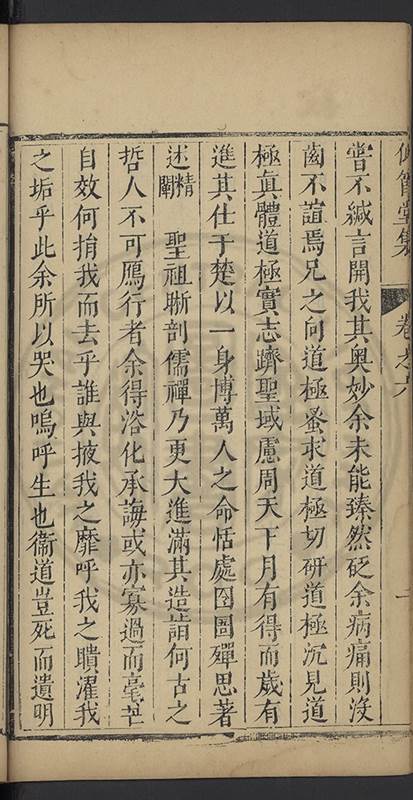 集
卷之六
嘗不緘言開我其奧妙余未能臻然砭余病痛則沒
齒不諠焉兄之问道極蚤求道極切研道極沉見道
極眞體道極實志躋聖域慮周天下月有得而歲有
進其仕于楚以一身博萬人之命恬處囹圄殫思著
述精闡　聖祖斷剖儒禪乃更大進滿其造詣何古之
哲人不可鴈行者余得浴化承誨或亦寡過而毫芒
自效何捐我而去乎誰與掖我之靡呼我之瞶濯我
之垢乎此余所以哭也嗚呼生也衞道豈死而遺明